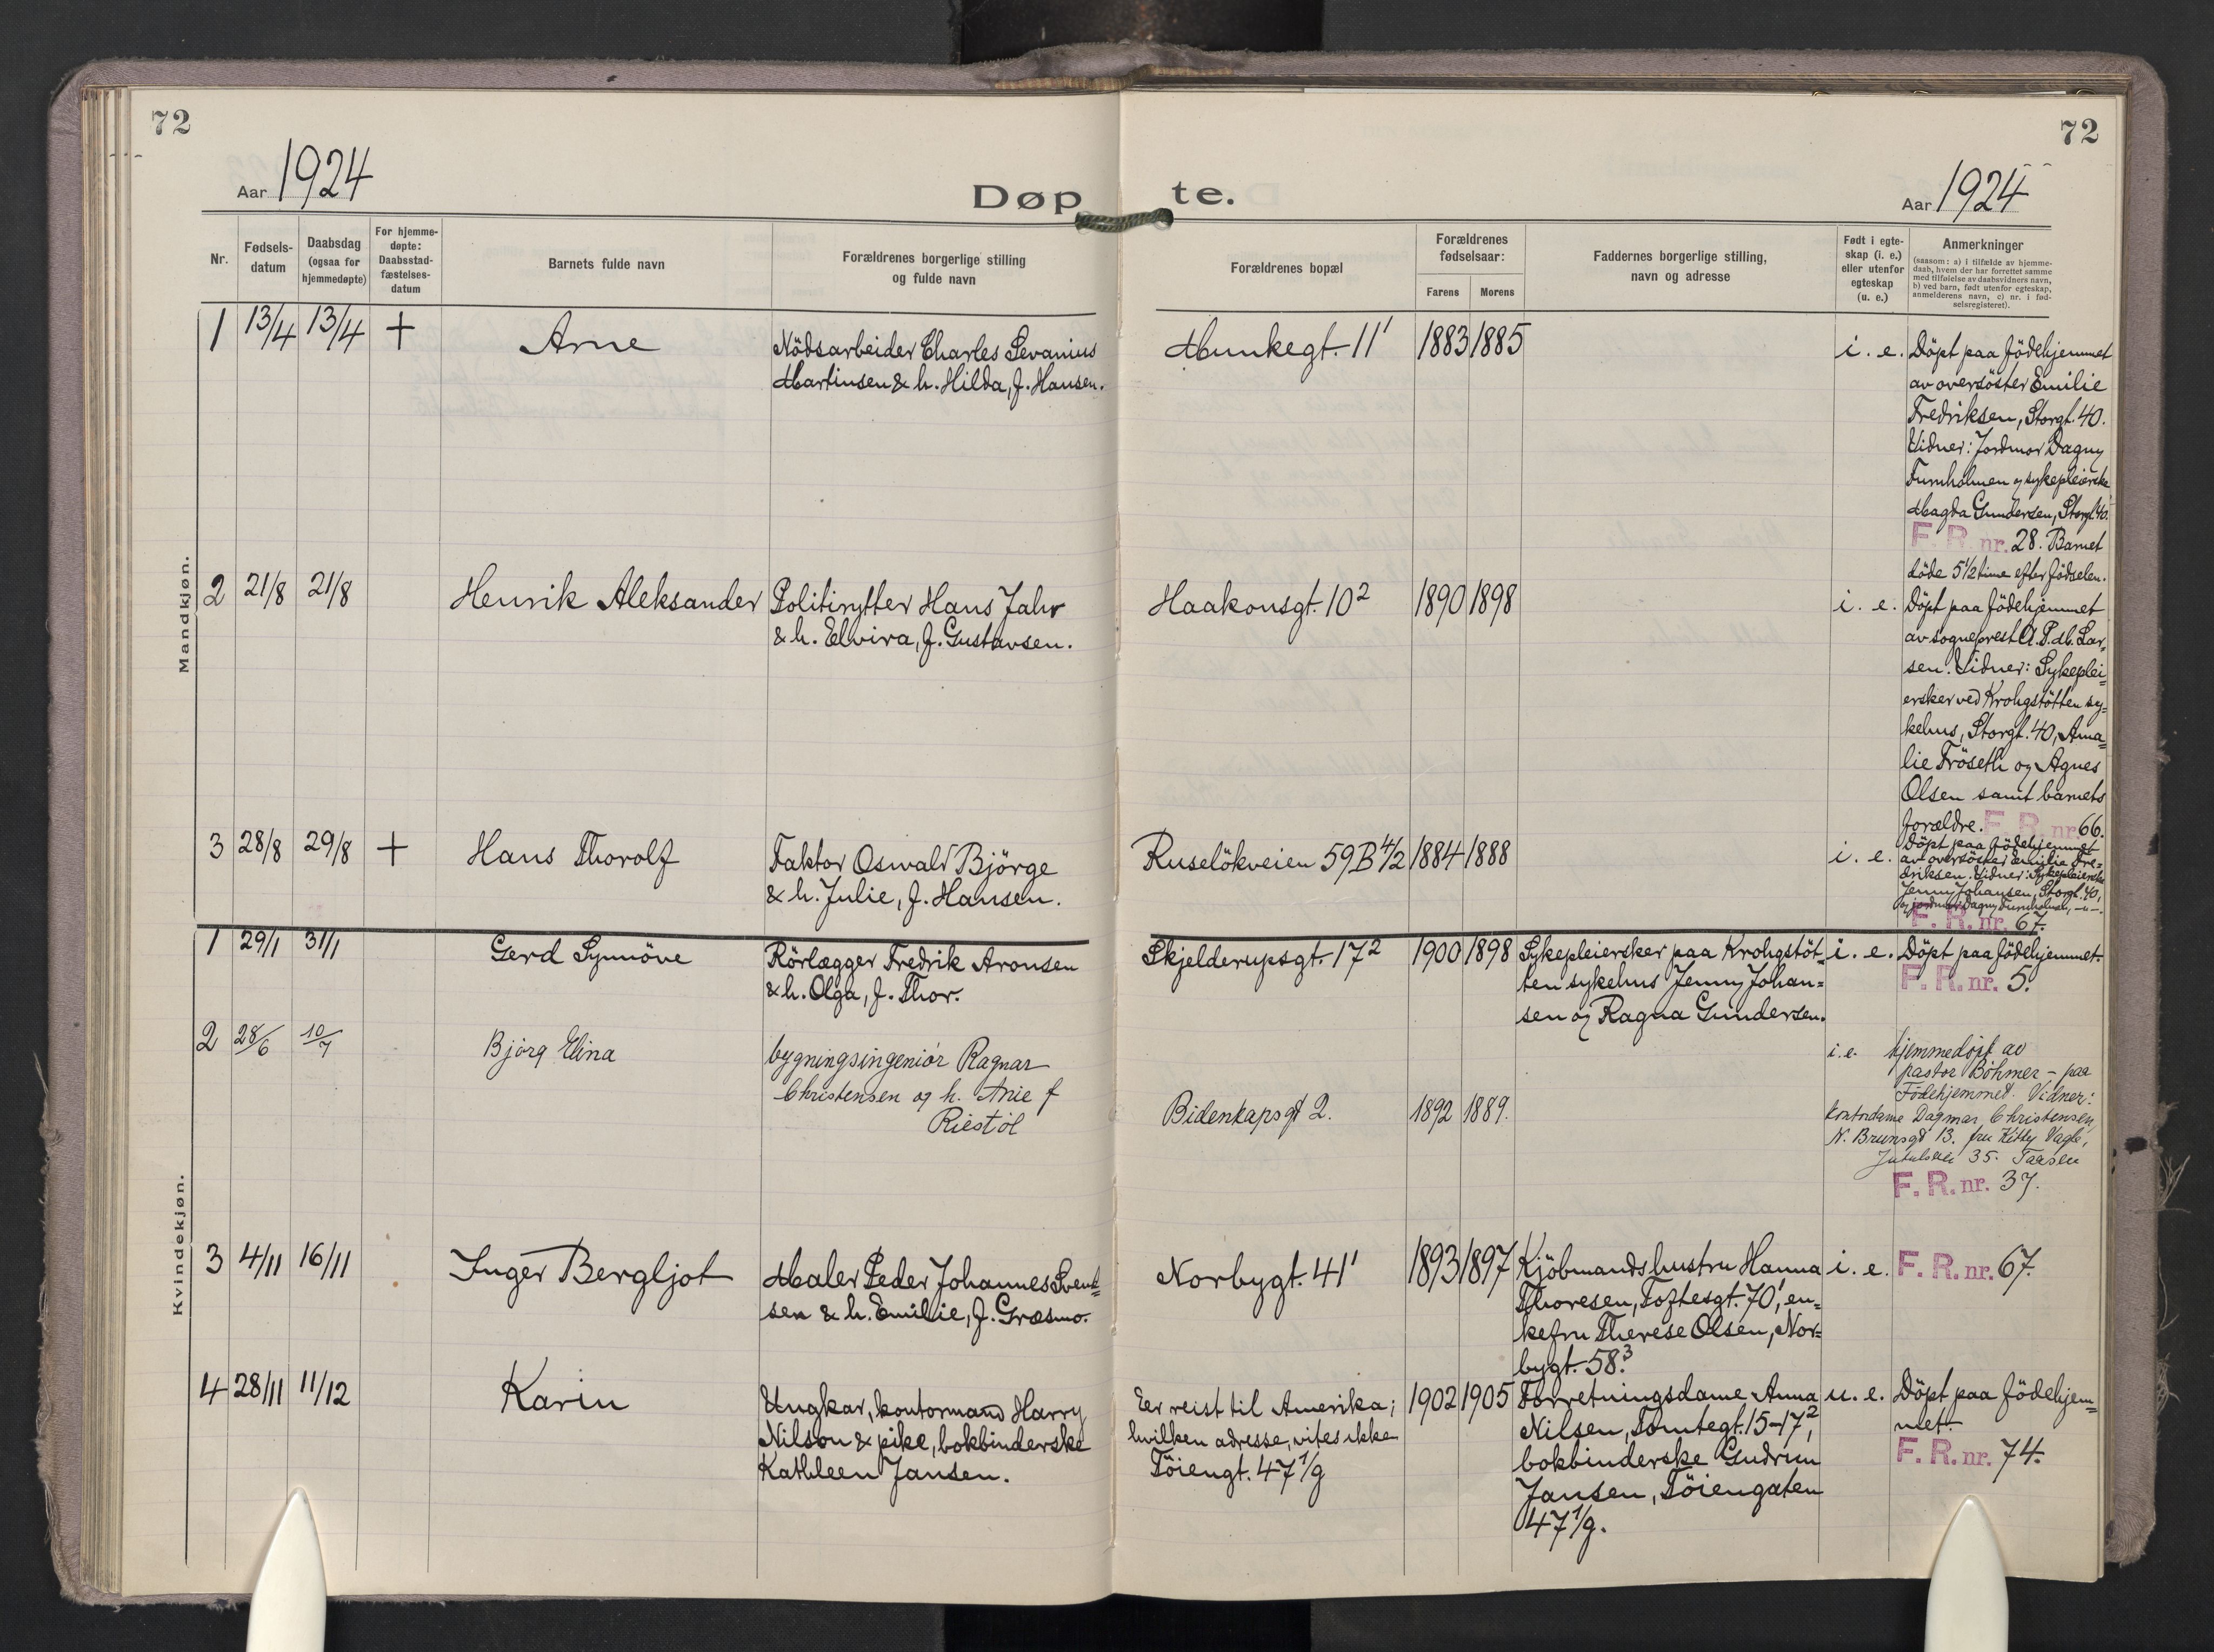 72
72
Aar 1924
Aar 1924
Døpte.
Nr.
Fødsels-
datum
Daabsdag
(ogsaa for
hjemmedøpte)
For hjemme-
døpte:
Daabsstad-
fæstelses-
datum
Barnets fulde navn
Forældrenes borgerlige stilling
og fulde navn
Forældrenes bopæl
Forældrenes
fødselsaar:
Farens Morens
Faddernes borgerlige stilling,
navn og adresse
Født i egte-
skap (i. e.)
eller utenfor
egteskap
(u. e.)
Anmerkninger
(saasom: a) i tilfælde av hjemme-
daab, hvem der har forrettet samme
med tilføielse av daabsvidners navn,
b) ved barn, født utenfor egteskap,
anmelderens navn, c) nr. i fød-
selsregisteret).
Mandkjøn.
1 13/4 13/4 + Arne
Nödsarbeider Charles Levanius
Martinsen & h. Hilda, f. Hansen.
Munkegt. 11'
1883 1885
i. e.
Döpt paa födehjemmet
av oversöster Emilie
Fredriksen, Storgt. 40.
Vidner: Jordmor Dagny
Furuholmen og sykepleierske
Magda Gundersen, Storgt. 40.
F. R. nr. 28. Barnet
döde 5 1/2 time efter födselen.
2 21/8 21/8 Henrik Aleksander
Politirytter Hans Jahr
& h. Elvira, f. Gustavsen.
Haakonsgt. 10²
1890 1898
i. e.
Döpt paa födehjemmet
av sogneprest A. P. M. Lar=
sen. Vidner: Sykeplei=
ersker ved Krohgstötten sy=
kehus, Storgt. 40, Ama=
lie Fröseth og Agnes
Olsen samt barnets
forældre. F. R. nr. 66.
3 28/8 29/8 + Hans Thorolf
Faktor Oswald Björge
& h. Julie, f. Hansen.
Ruselökveien 59 B 4/2
1884 1888
i. e.
Döpt paa födehjemmet
av oversöster Emilie Fre=
driksen. Vidner: Sykepleierske
Jenny Johansen, Storgt. 40,
og jordmor Dagny Furuholmen, -"-.
F. R. nr. 67.
Kvindekjøn.
1 29/1 31/1 Gerd Synnöve
Rörlægger Fredrik Aronsen
& h. Olga, f. Thor.
Skjelderupsgt. 17²
1900 1898
Sykepleiersker paa Krohgstöt=
ten sykehus Jenny Johan=
sen og Ragna Gundersen.
i. e.
Döpt paa födehjemmet.
F. R. nr. 5.
2 28/6 10/7 Bjørg Elina
bygningsingeniør Ragnar
Christensen og h. Anie f
Riestöl
Bidenkapsgt 2.
1892 1889.
i. e.
hjemmedøpt av
pastor Böhmer - paa
Födehjemmet. Vidner:
kontordame Dagmar Christensen,
N. Brunsgt 13. fru Kitty Vagle,
35. Taasen
F. R. nr. 37.
3 4/11 16/11 Inger Bergljot
Maler Peder Johannes Svend=
sen & h. Emilie, f. Græsmo.
Norbygt. 41'
1893 1897
Kjöbmandshustru Hanna
Thoresen, Toftesgt. 70', en=
kefru Therese Olsen, Nor=
bygt. 58.³
i. e.
F. R. nr. 67.
4 28/11 11/12 Karin
Ungkar, kontormand Harry
Nilson & pike, bokbinderske
Kathleen Jansen.
Er reist til Amerika;
hvilken adresse, vites ikke
Töiengt. 47 1/g
1902 1905
Forretningsdame Anna
Nilsen, Tomtegt. 15-17,²
bokbinderske Gudrun
Jansen, Töiengaten
47 1/g.
u. e.
Döpt paa födehjem=
met.
F. R. nr. 74.